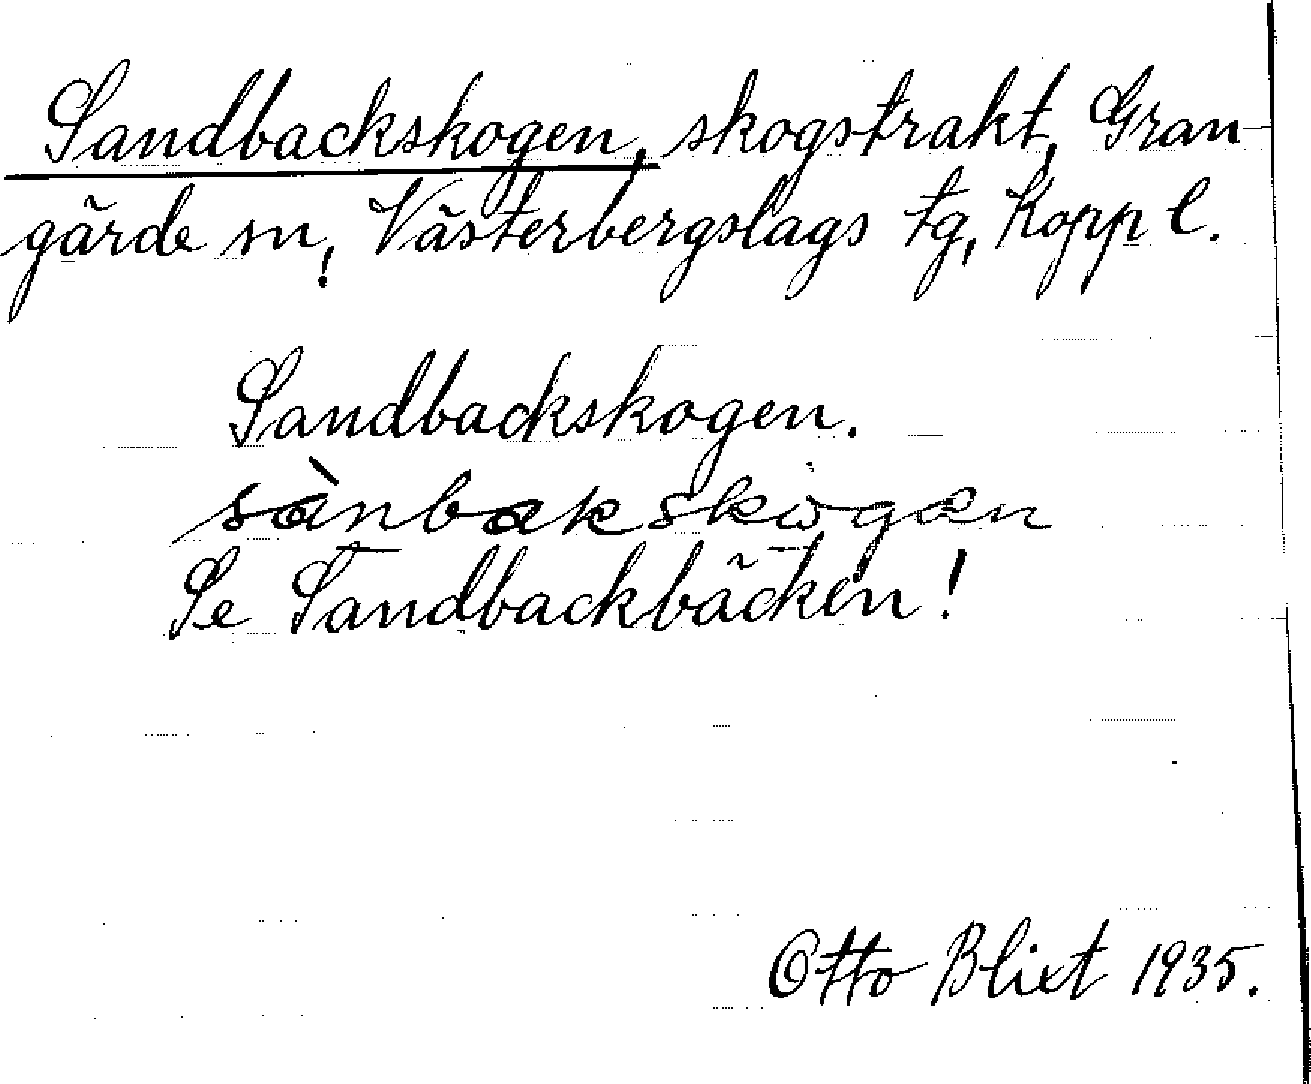 Sandbackskogen, skogstrakt, Gran
gärde sn, Västerbergslags tg, Kopp l.
Sandbackskogen.
sànbakskogæn
Se Sandbackbäcken!
Otto Blixt 1935.